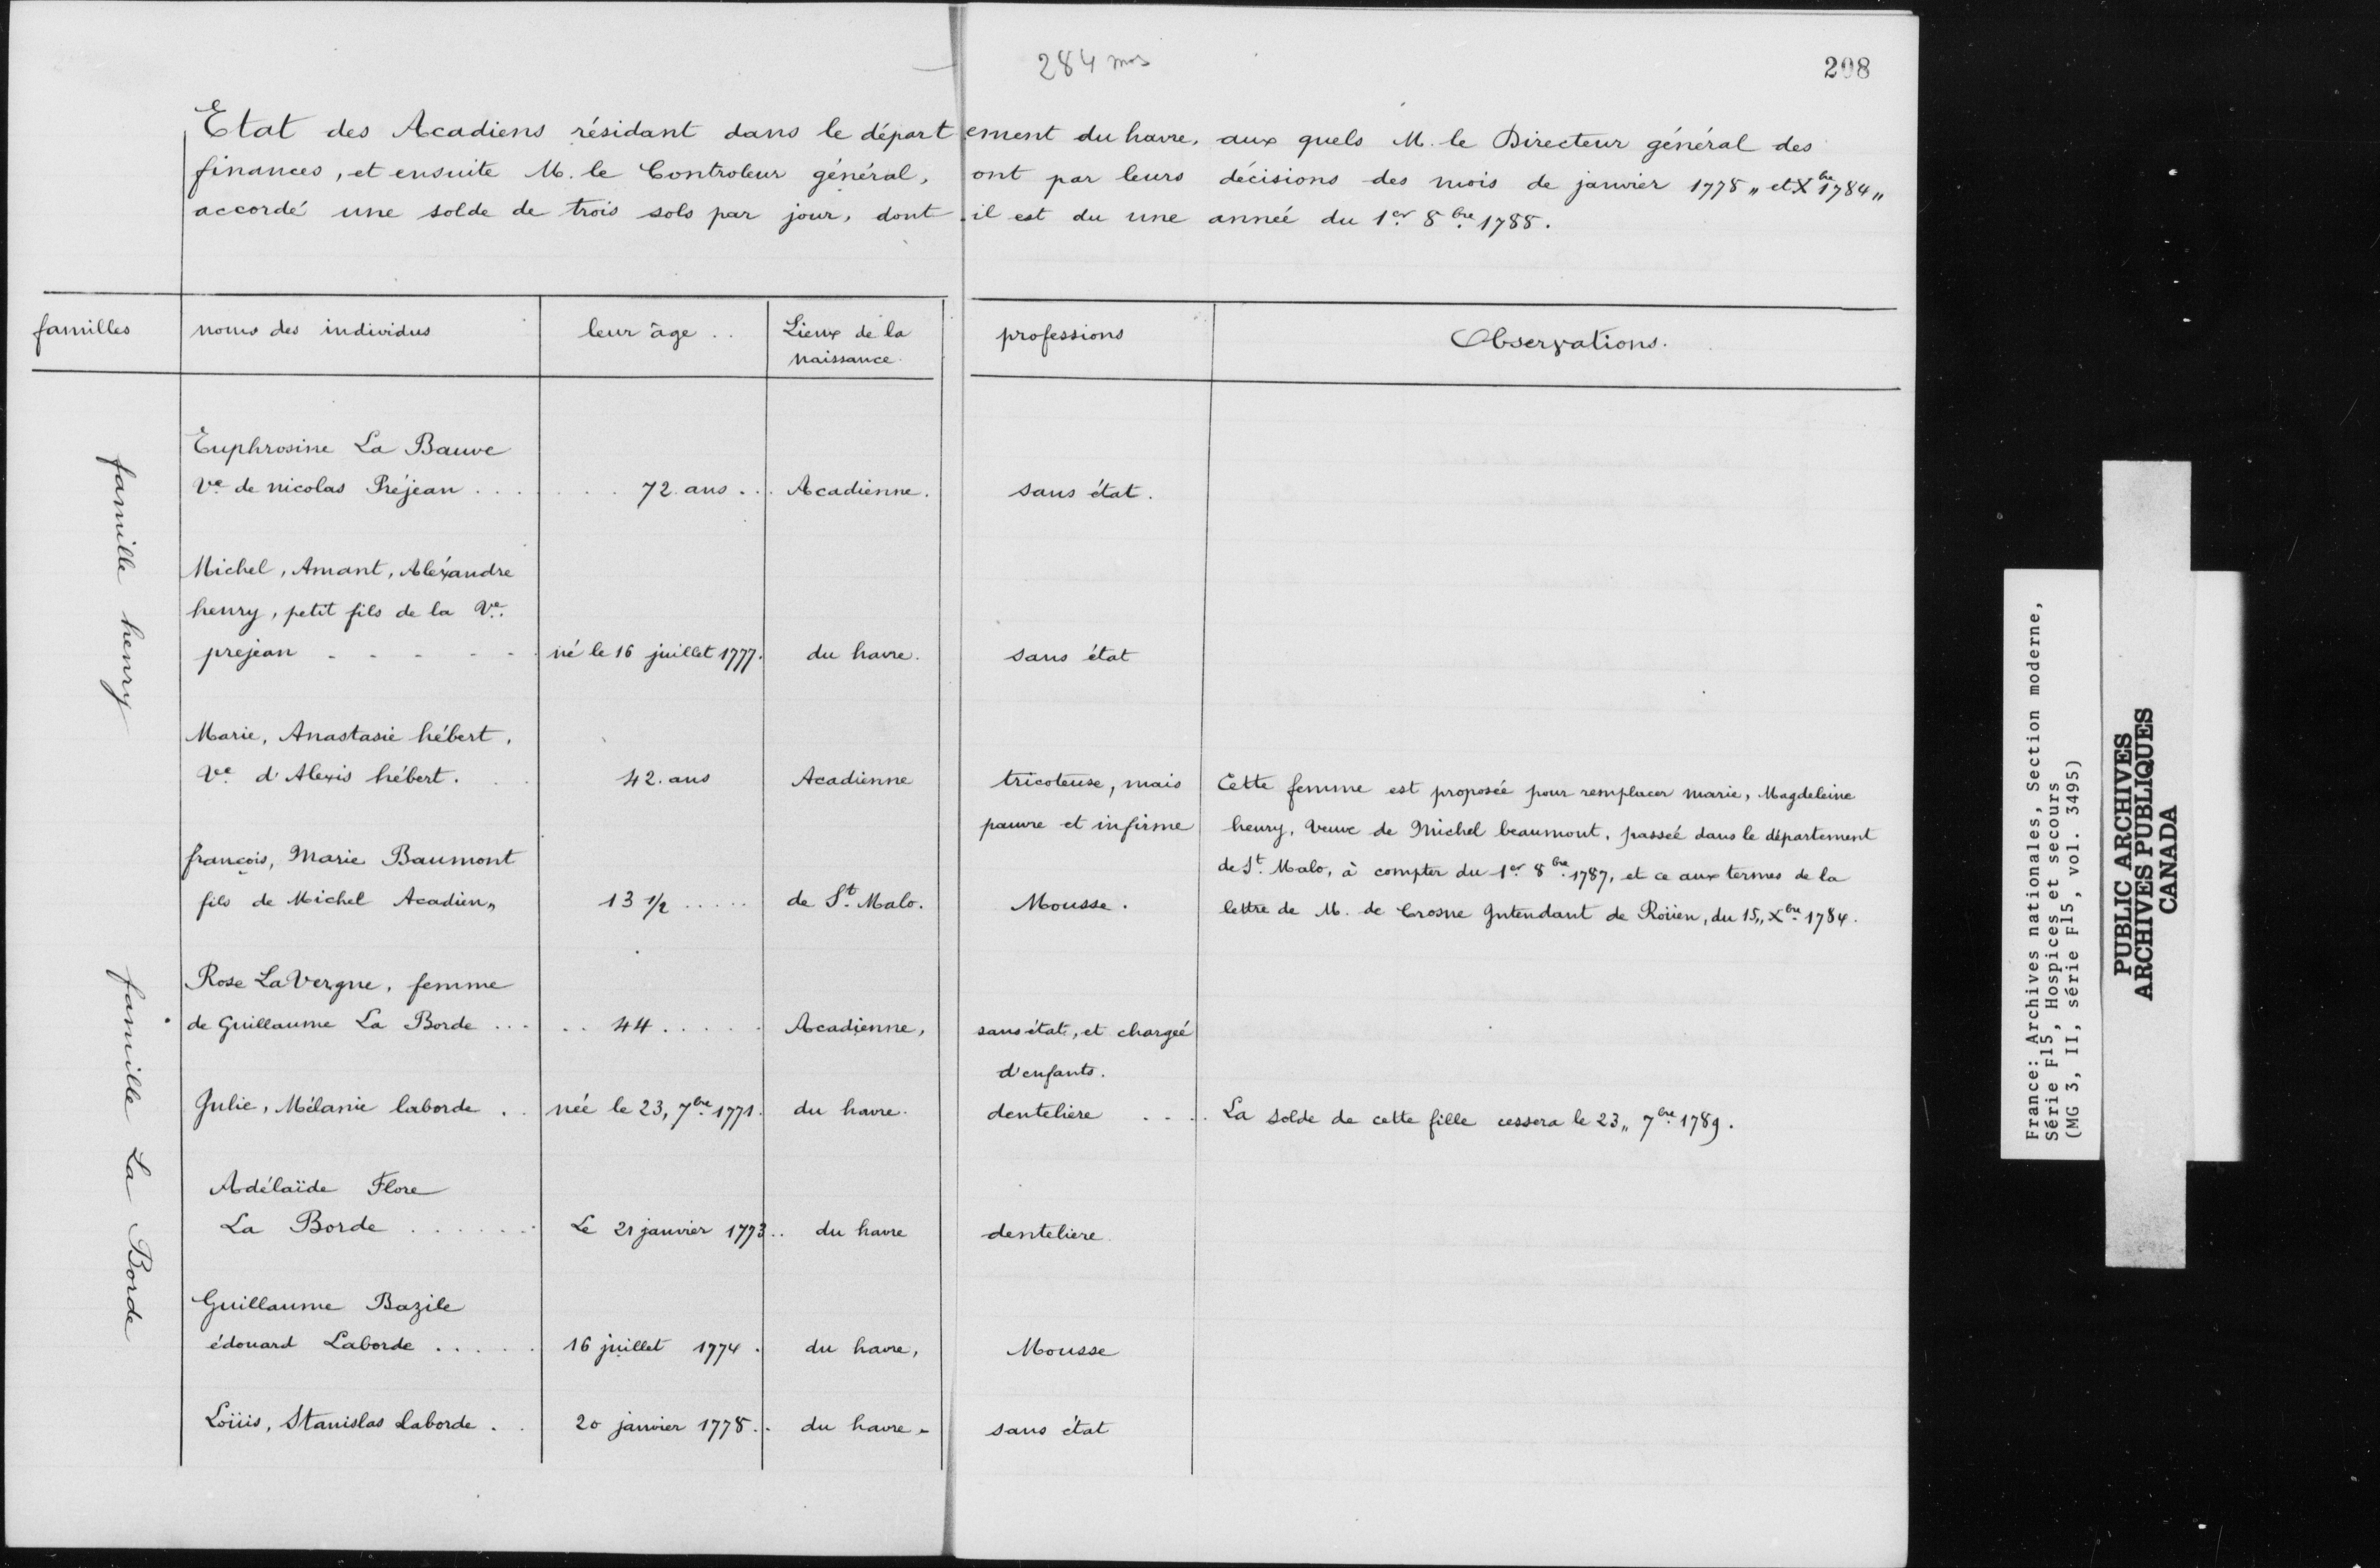 284 mos
208
Etat des Acadiens résidant dans le département du havre, aux quels M. le Directeur général des
finances, et ensuite M. le Controleur général, ont par leurs décisions des mois de janvier 1778 „ et Xbre 1784 „
accordé une solde de trois sols par jour, dont il est du une année du 1er 8bre 1788.
familles noms des individus leur âge .. Lieux de la naissance. professions Observations.
famille henry
Euphrosine La Bauve
Ve de nicolas Préjean . . . . . . 72 ans . . . Acadienne. sans état.
Michel, Amant, Aléxandre
henry, petit fils de la Ve
prejean - - - - - né le 16 juillet 1777. du havre. sans état
Marie, Anastasie hébert,
Ve d'Alexis hébert. 42. ans Acadienne tricoteuse, mais Cette femme est proposée pour remplacer marie, Magdeleine
pauvre et infirme henry, veuve de Michel beaumont, passeé dans le département
françois, Marie Baumont de St Malo, à compter du 1er 8bre 1787, et ce aux termes de la
fils de Michel Acadien„ 13 1/2 ..... de St Malo. Mousse. lettre de M. de Crosne Intendant de Roüen, du 15„ Xbre 1784.
famille La Borde
Rose La Vergne, femme
de Guillaume La Borde ... .. 44 ..... Acadienne, sans état, et chargeé
d'enfants.
Julie, Mélanie laborde . . née le 23, 7bre 1771. du havre. denteliere . . . . La solde de cette fille cessera le 23„ 7bre 1789.
Adélaïde Flore
La Borde ...... Le 21 janvier 1773.. du havre denteliere
Guillaume Bazile
édouard Laborde ..... 16 juillet 1774. du havre, Mousse
Loüis, Stanislas Laborde . . 20 janvier 1778.. du havre - sans état
France: Archives nationales, Section moderne,
Série F15, Hospices et secours
(MG 3, II, série F15, vol. 3495)
PUBLIC ARCHIVES
ARCHIVES PUBLIQUES
CANADA